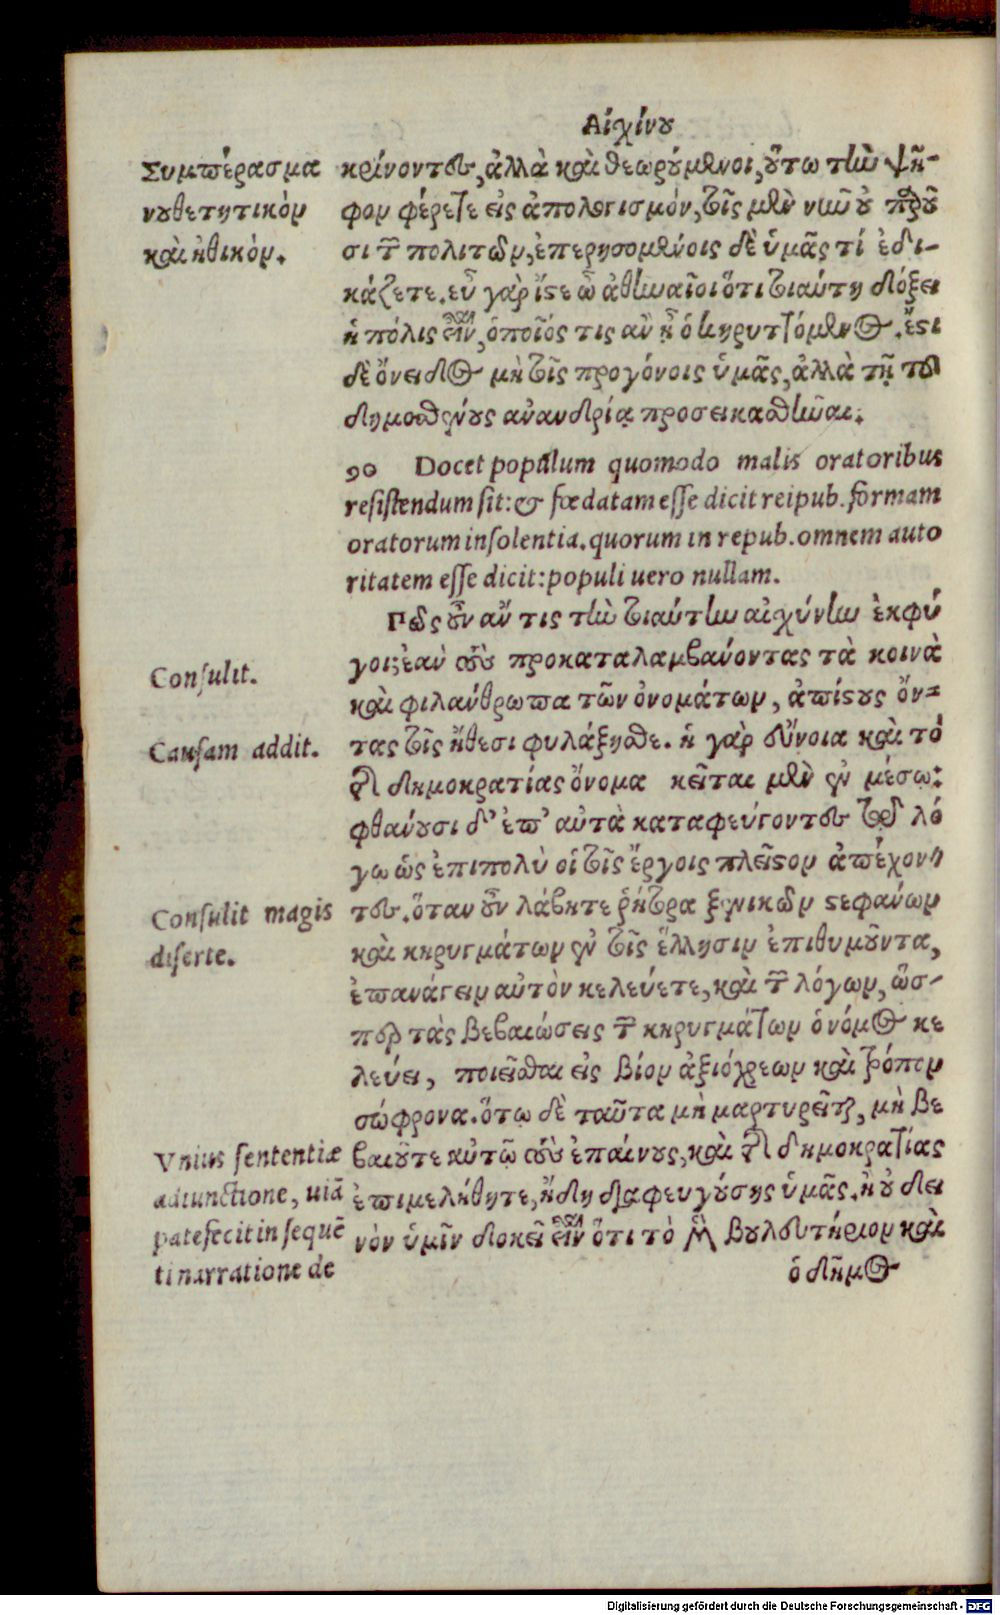 Αἰχίνου
Συμπέρασμα
νουθετητικὸν
καὶ ἠθικὸν.
κρίνοντες, ἀλλὰ καὶ θεωρούμενοι, οὕτω τὴν ψῆ-
φον φέρετε εἰς ἀπολογισμὸν, τοῖς μὲν νῦν οὐ παροῦ
σι τῶν πολιτῶν, ἐπερησομένοις δὲ ὑμᾶς τί ἐδι-
κάζετε. εὖ γὰρ ἴστε ὦ ἀθηναῖοι ὅτι τοιαύτη δόξει
ἡ πόλις εἶναι, ὁποῖός τις ἂν ᾖ ὁ κηρυττόμενος. ἔστι
δὲ ὄνειδος μὴ τοῖς προγόνοις ὑμᾶς, ἀλλὰ τῇ τοῦ
δημοσθένους ἀνανδρίᾳ προσεικασθῆναι.
90 Docet populum quomodo malis oratoribus
resistendum sit: & fœdatam esse dicit reipub. formam
oratorum insolentia. quorum in repub. omnem auto
ritatem esse dicit: populi uero nullam.
Πῶς οὖν ἄν τις τὴν τοιαύτην αἰχύνην ἐκφύ
Consulit.
γοι; ἐὰν τοὺς προκαταλαμβάνοντας τὰ κοινὰ
καὶ φιλάνθρωπα τῶν ὀνομάτων, ἀπίστους ὄν=
Causam addit.
τας τοῖς ἤθεσι φυλάξησθε. ἡ γὰρ εὔνοια καὶ τὸ
τῆς δημοκρατίας ὄνομα κεῖται μὲν ἐν μέσῳ:
φθάνουσι δ' ἐπ' αὐτὰ καταφεύγοντες τῷ λό
γῳ ὡς ἐπιπολὺ οἱ τοῖς ἔργοις πλεῖστον ἀπέχον-
Consulit magis
diserte.
τες. ὅταν οὖν λάβητε ῥήτορα ξενικῶν στεφάνων
καὶ κηρυγμάτων ἐν τοῖς ἕλλησιν ἐπιθυμοῦντα,
ἐπανάγειν αὐτὸν κελεύετε, καὶ τῶν λόγων, ὥσ-
περ τὰς βεβαιώσεις τῶν κηρυγμάτων ὁ νόμος κε
λεύει, ποιεῖσθαι εἰς βίον ἀξιόχρεων καὶ τρόπον
σώφρονα. ὅτῳ δὲ ταῦτα μὴ μαρτυρεῖται, μὴ βε
Vnius sententiæ
adiunctione, uiã
patefecit in sequẽ
ti narratione de
βαιοῦτε αὐτῷ τοὺς ἐπαίνους, καὶ τῆς δημοκρατίας
ἐπιμελήθητε, ἤδη διαφευγούσης ὑμᾶς. ἢ οὐ δει
νὸν ὑμῖν δοκεῖ εἶναι ὅτι τὸ μὲν βουλευτήριον καὶ
ὁ δῆμος
Digitalisierung gefördert durch die Deutsche Forschungsgemeinschaft - DFG